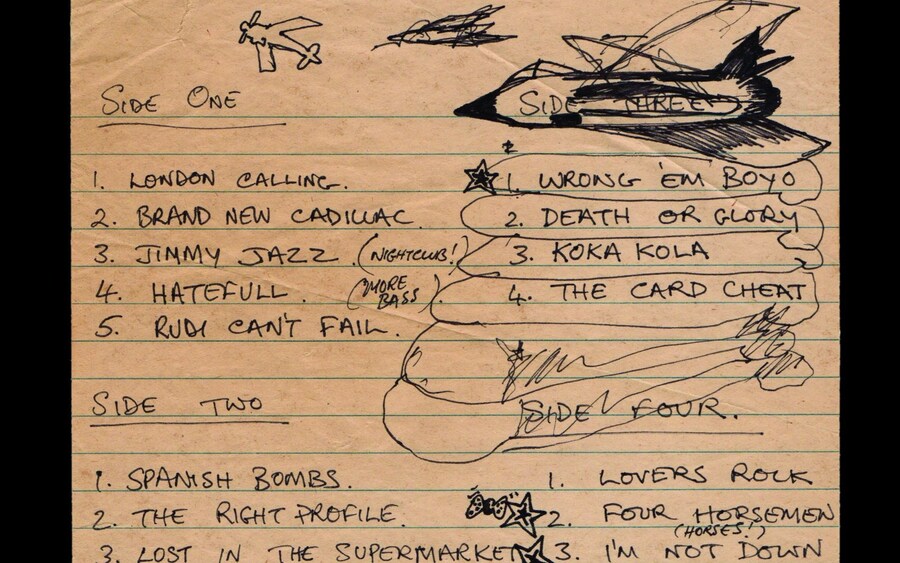 SIDE ONE
1. LONDON CALLING.
2. BRAND NEW CADILLAC
3. JIMMY JAZZ. (NIGHTCLUB!)
4. HATEFULL. (MORE BASS)
5. RUDI CAN'T FAIL.
SIDE TWO
1. SPANISH BOMBS.
2. THE RIGHT PROFILE.
3. LOST IN THE SUPERMARKET
SIDE THREE
1. WRONG 'EM BOYO
2. DEATH OR GLORY
3. KOKA KOLA
4. THE CARD CHEAT
SIDE FOUR.
1. LOVERS ROCK
2. FOUR HORSEMEN
(HORSES!)
3. I'M NOT DOWN